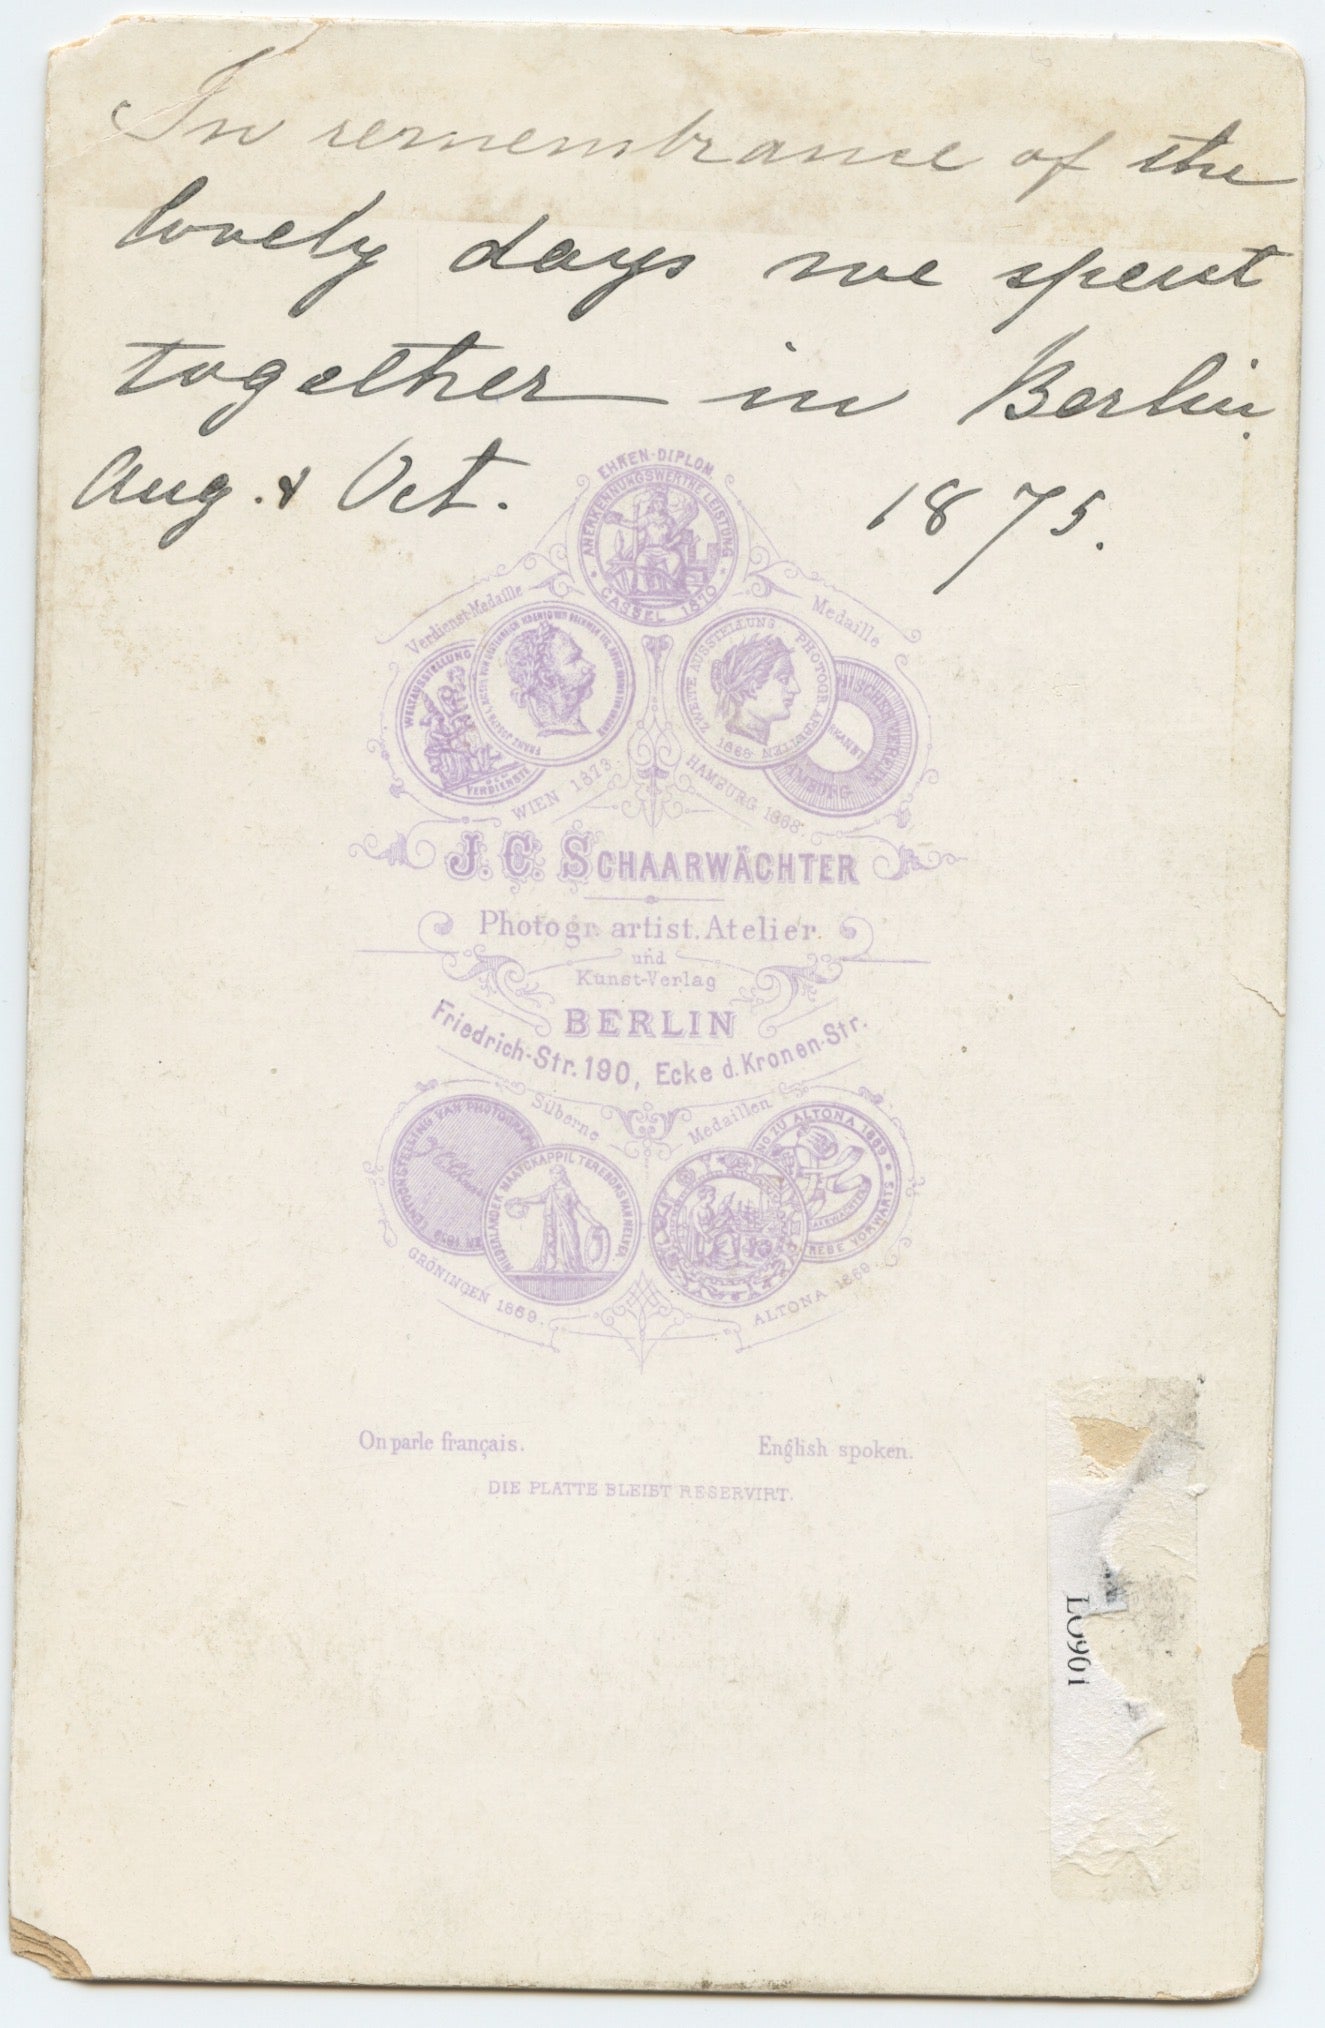 In remembrance of the
lovely days we spent
together in Berlin.
Aug. & Oct. 1875.
EHREN-DIPLOM
ANERKENNUNGSWERTHE LEISTUNG
CASSEL 1870
Verdienst-Medaille
Medaille
WELTAUSSTELLUNG
VERDIENSTE
FRANZ JOSEPH I.
ZWEITE AUSSTELLUNG PHOTOGR. ARBEITEN
1868
WIEN 1873.
HAMBURG 1868.
J. C. SCHAARWÄCHTER
Photogr. artist. Atelier.
und
Kunst-Verlag
BERLIN
Friedrich-Str. 190, Ecke d. Kronen-Str.
Silberne Medaillen
ZU ALTONA 1869
VORWÄRTS
GRÖNINGEN 1869.
ALTONA 1869.
On parle français. English spoken.
DIE PLATTE BLEIBT RESERVIRT.